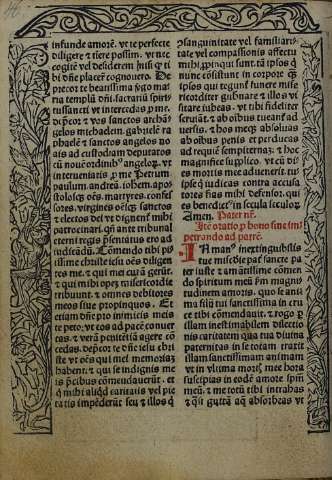 infunde amorē. vt te perfecte
diligere ꝛ
cogitē vel desiderem
bi dn̄e placere cognouero. De
precor te beatissima
ria templū dn̄i. sacrariū spiri
tussancti vt intercedas p me.
dep̄cor ꝛ vos sanctos archā
gelos michaelem. gabrielē ra
phaelē ꝛ sanctos angelos no
uis ad custodiam deputatos
cū nouē ordinibꝰ angeloꝝ. vt
interueniatis p me Petrum
paulum. andreā. iohem. apo
stolosqꝫ oēs. martyres. confes
sores. virgines oēsqꝫ sanctos
ꝛ electos dei vt dignent̄ mihi
patrocinari. qn̄ ante tribunal
eterni regis p̄sentatus ero ad
iudicādū. Cōmendo tibi pi
issime christe iesu oēs diligen
tes me. ꝛ qui mei curā gerūt.
ꝛ qui mihi opeꝝ misericordie
tribuunt. ꝛ omnes debitores
meos siue propinquos. Et
etiam dn̄e pro inimicis meis
te peto. vt eos ad pacē conuer
tas. ꝛ verā penitētiā agere cō
cedas. dep̄cor te dn̄e iesu chri
ste vt oēs qui mei memoriaꝫ
habent. ꝛ qui se indignis me
is p̄cibus cōmendauerūt. et
qui mihi aliqd caritatis vel pie
tatis impēderūt seu ꝛ illos q̄
ꝓsanguinitate vel familiari
tate vel compassionis affectu
mihi ꝓpinqui sunt. tā ipsos q̄
nunc consistunt in corpore qꝫ
ipsos qui tegunt̄ funere mise
ricorditer gubnare ꝛ illos vi
sitare iubeas. vt tibi fideliter
seruiāt. ꝛ ab oībus tueant̄ ad
uersis. ꝛ hos mecū absoluas
ab oībus penis et perducas
ad requiē sempiternaꝫ. ꝛ hoc
magnifice supplico. vt cū di
es mortis mee aduenerit. tu
ipse iudicas contra accusa
tores fias mihi defensor. qui
es benedictꝰ in secula seculoꝝ
Amen. Pater nr̄.
Itē oratio p bono fine im
petrando ad patrē.
inextinguibilis
tue misc̄die pater sancte pa
ter iuste ꝛ amātissime cōmen
do spiritum meū p magni
tudinem amoris. quo se ani
ma filij tui sanctissima in cru
ce tibi cōmendauit. ꝛ rogo p
illam inestimabilem dilectio
nis caritatem qua tua diuina
paternitas in se totam traxit
illam sanctissimam animam
vt in vltima morte mee hora
suscipias in eodē amore spm̄
meū. ꝛ me totū tibi intrahas
ꝛ qsi guttā aq̄ absorbeas vt